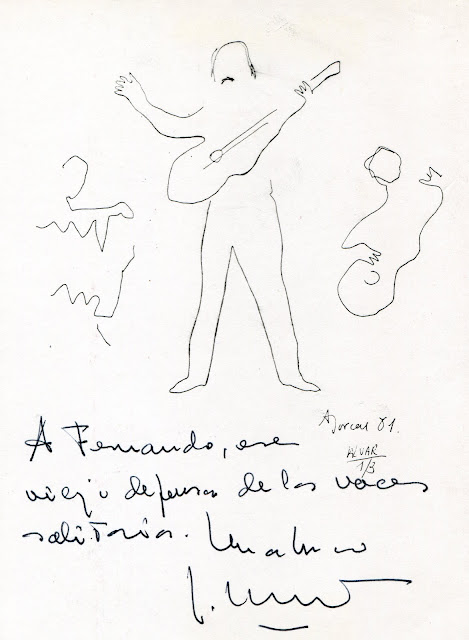 81.
ALVAR
1/3
A Fernando, ese
viejo defensor de las voces
solitarias. Un abrazo